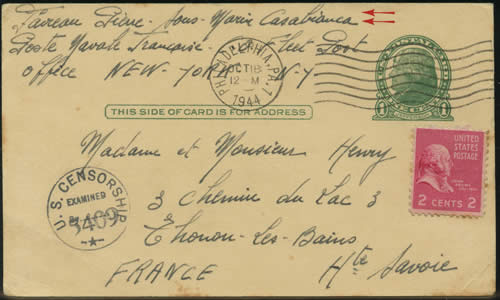 Faireau Pierre - Sous-Marin Casabianca
Poste Navale Française - Fleet Post
Office NEW-YORK N-Y
PHILADELPHIA, PA. 1
OCT 18
12-M
1944
UNITED STATES
THIS SIDE OF CARD IS FOR ADDRESS
1 1
UNITED
STATES
POSTAGE
2 CENTS 2
Madame et Monsieur Henry
3 Chemin du Lac 3
Thonon-Les-Bains
FRANCE Hte Savoie
U.S. CENSORSHIP
EXAMINED
BY
3409